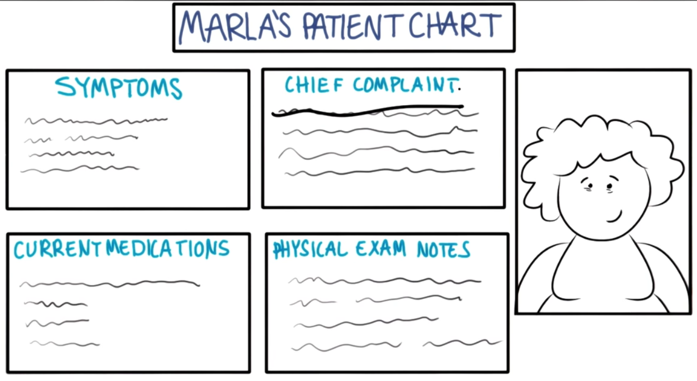 MARLA'S PATIENT CHART
SYMPTOMS
CHIEF COMPLAINT.
CURRENT MEDICATIONS
PHYSICAL EXAM NOTES